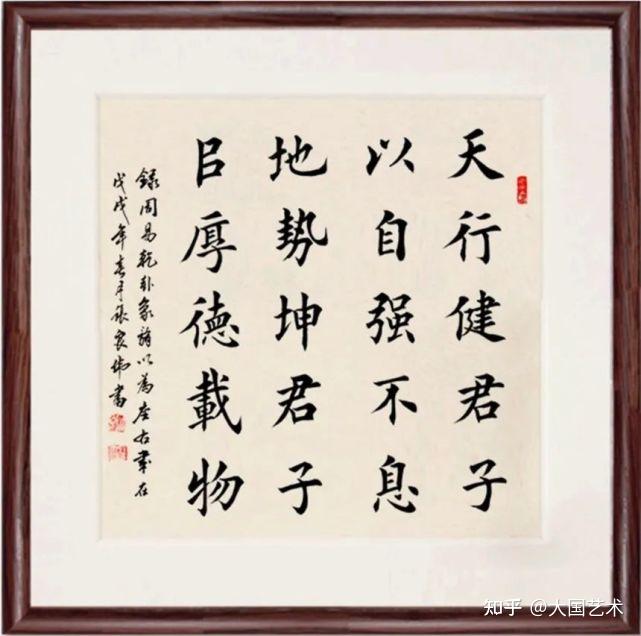 天行健君子
以自强不息
地勢坤君子
㠯厚德載物
錄周易乾卦象以為座右歲在
戊戌年春月張家書
知乎 @大国艺术